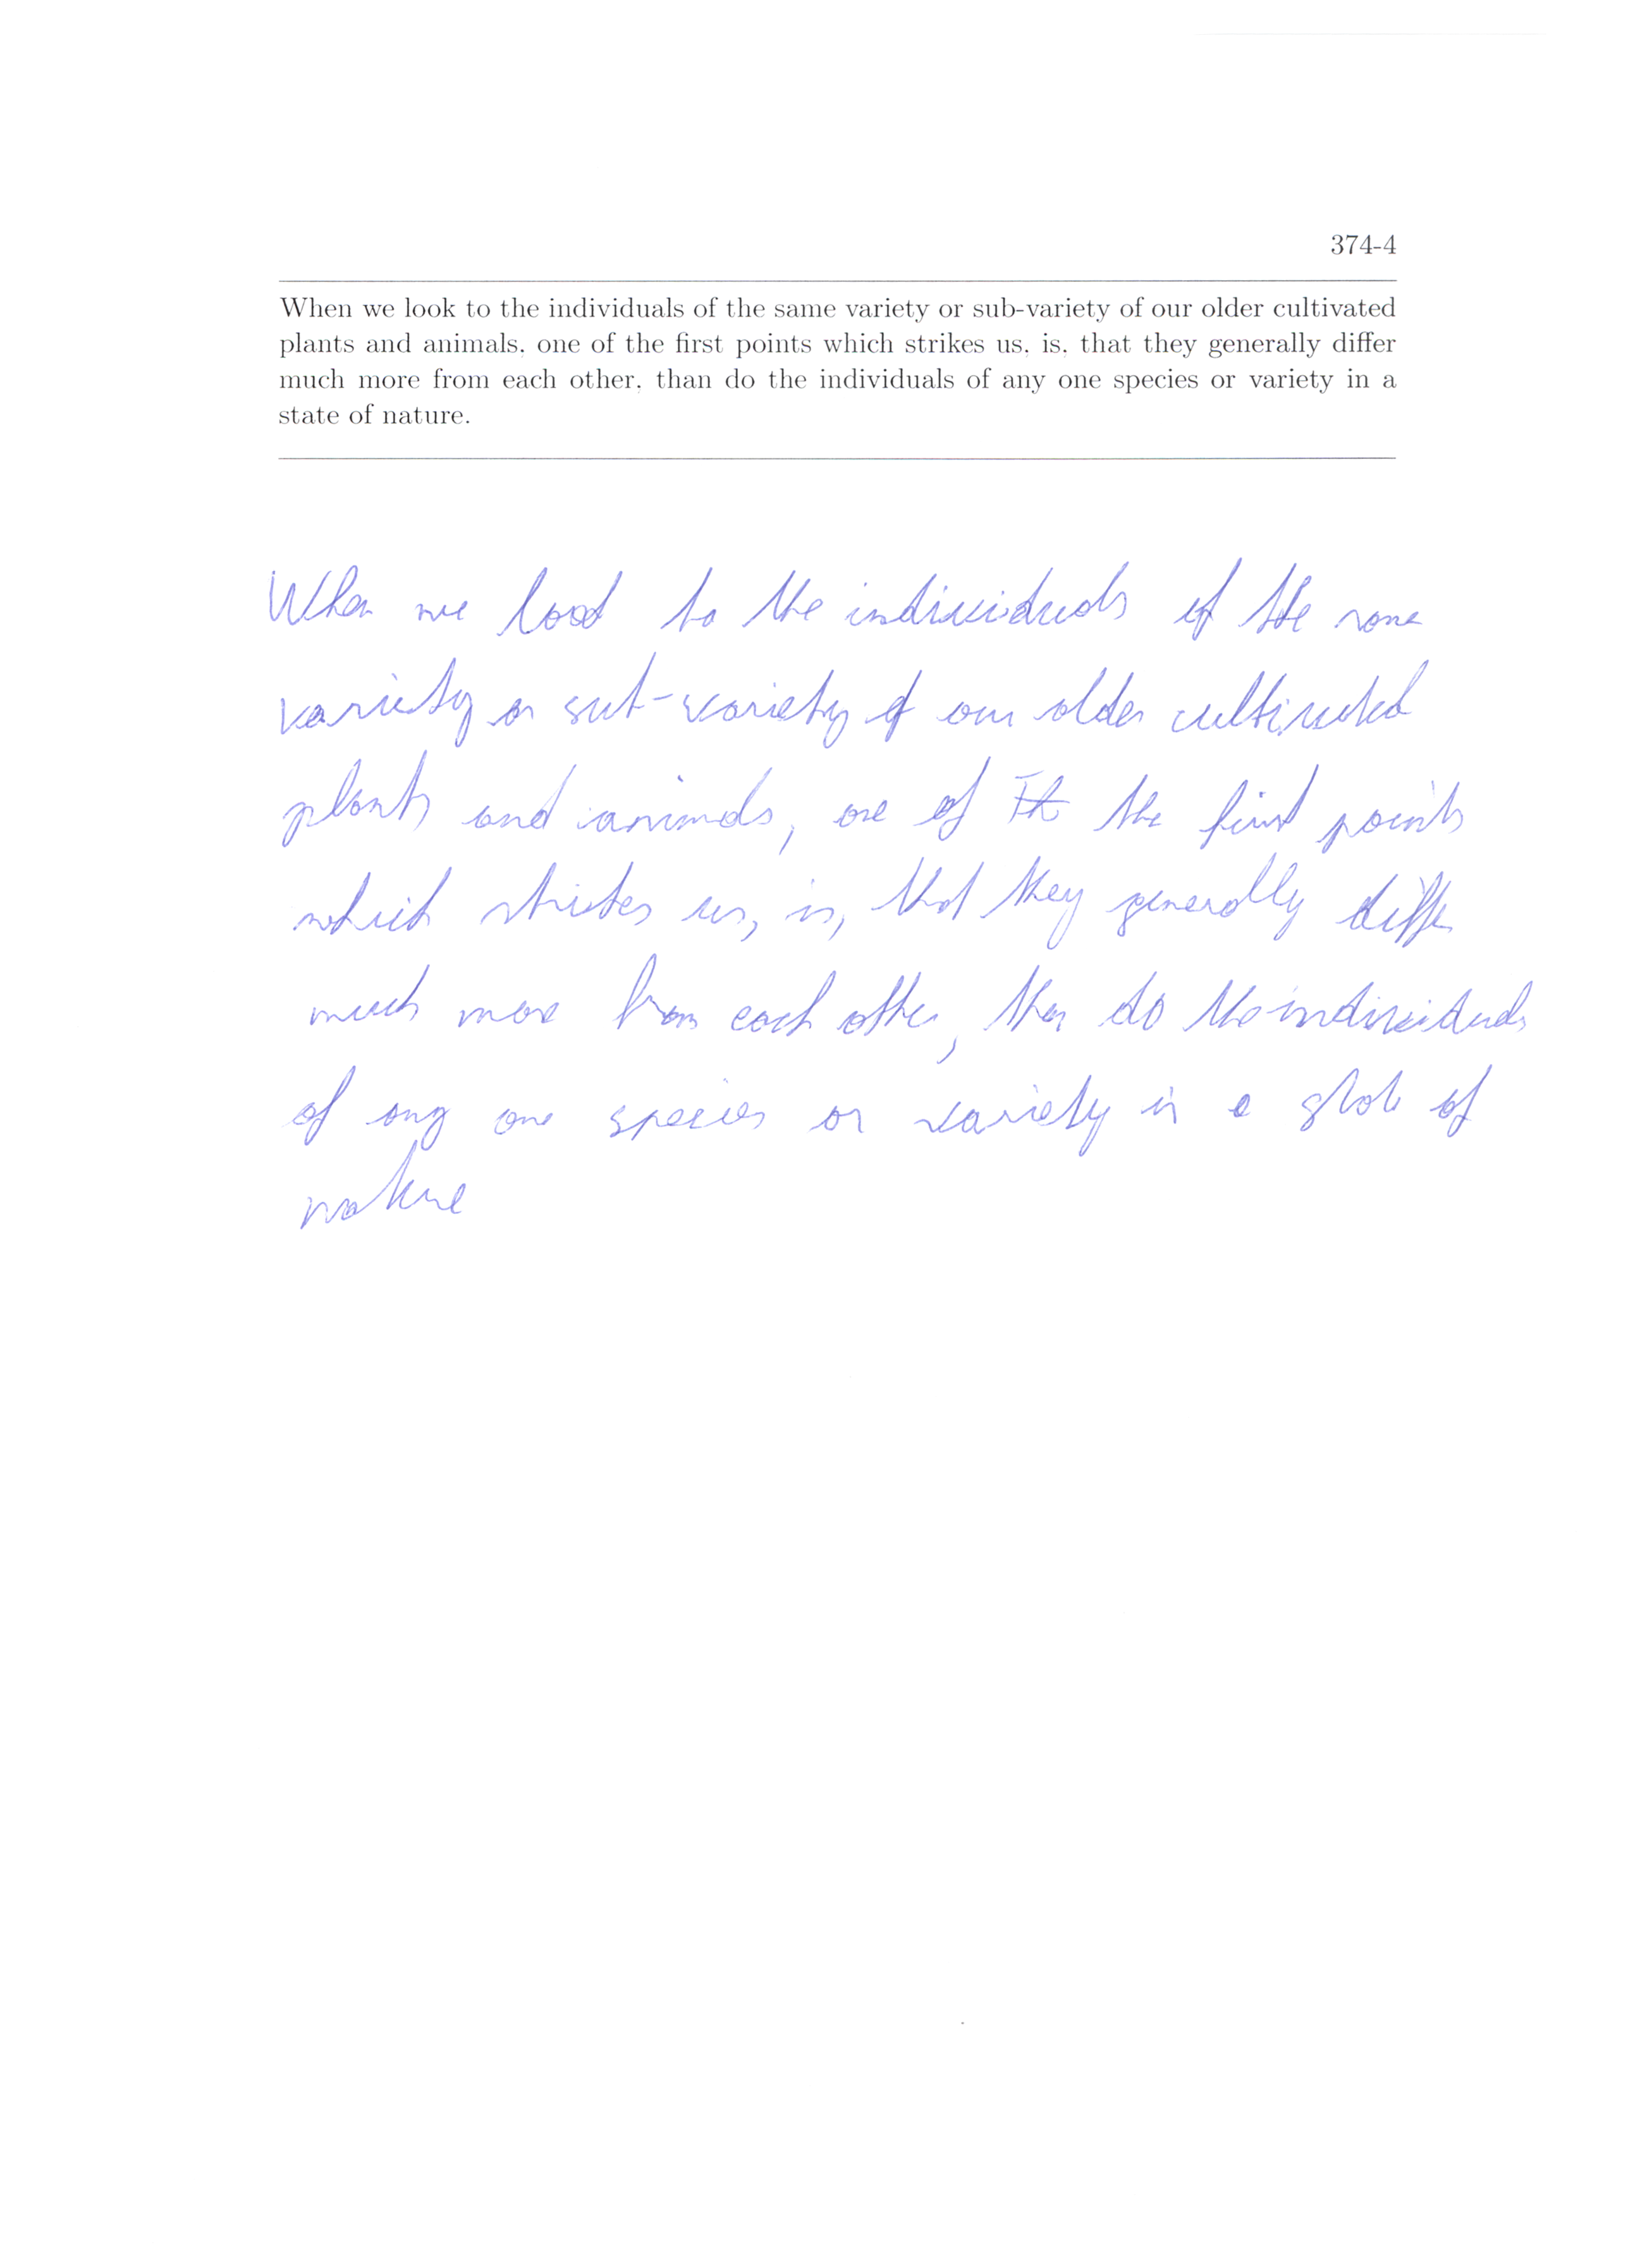 374-4
When we look to the individuals of the same variety or sub-variety of our older cultivated
plants and animals, one of the first points which strikes us, is, that they generally differ
much more from each other, than do the individuals of any one species or variety in a
state of nature.
When we look to the individuals of the same
variety or sub-variety of our older cultivated
plants and animals, one of the first points
which strikes us, is, that they generally differ
much more from each other, than do the individuals
of any one species or variety in a state of
nature